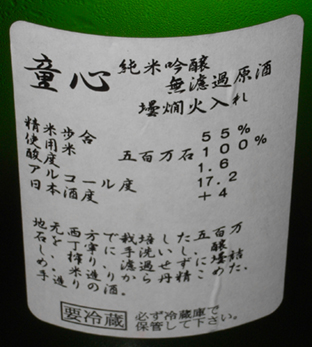 童心 純米吟醸
無濾過原酒
壜燗火入れ
精米歩合 55%
使用米 五百万石 100%
酸度 1.6
アルコール度 17.2
日本酒度 +4
地元西方で栽培した五百万
石を丁寧に手洗いし、醸
し、搾り濾過せずに壜詰
め。米造りから丹精こめた
手造りの酒。
要冷蔵 必ず冷蔵庫で
保管して下さい。